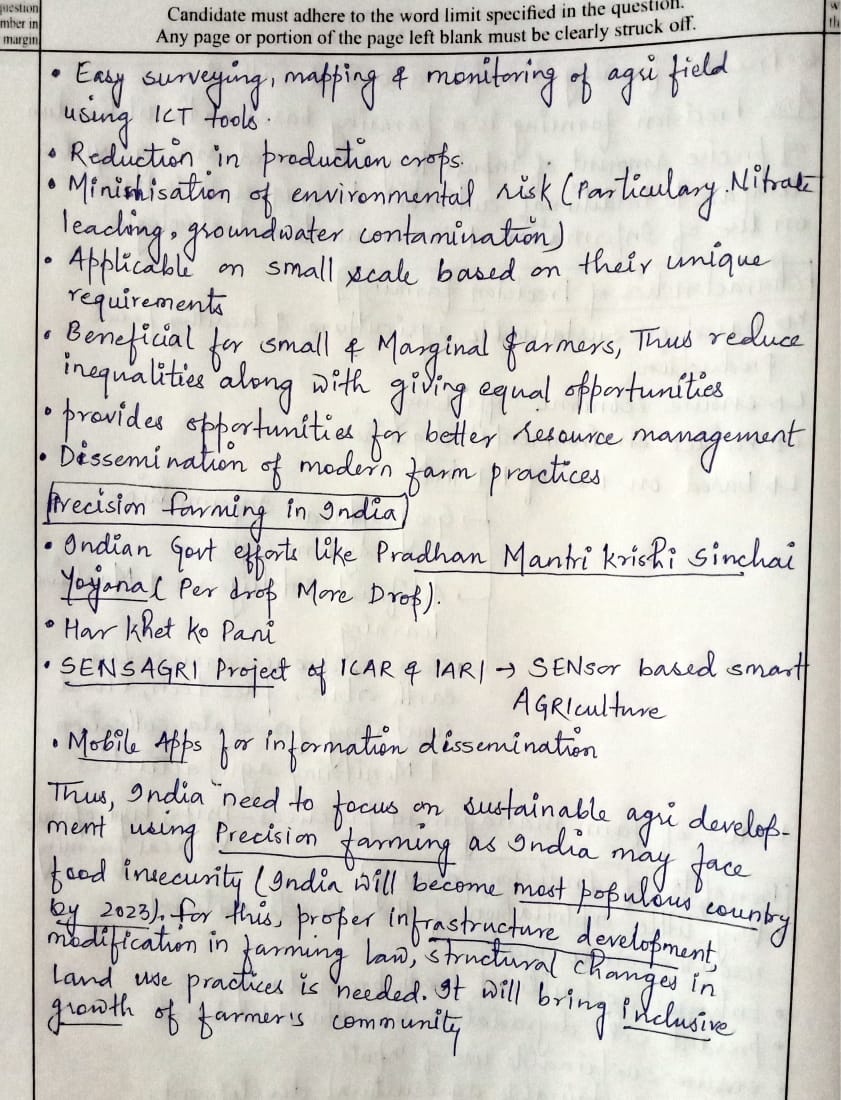 question
number in
margin
Candidate must adhere to the word limit specified in the question.
Any page or portion of the page left blank must be clearly struck off.
• Easy surveying, mapping & monitoring of agri field
using ICT tools.
• Reduction in production crops.
• Minishisation of environmental risk (Particulary Nitrate
leaching, groundwater contamination)
• Applicable on small scale based on their unique
requirements
• Beneficial for small & Marginal farmers, Thus reduce
inequalities along with giving equal opportunities
• provides opportunities for better resource management
• Dissemination of modern farm practices
Precision farming in India
• Indian Govt efforts like Pradhan Mantri krishi Sinchai
Yojana ( Per drop More Drop).
• Har khet ko Pani
• SENSAGRI Project of ICAR & IARI → SENSor based smart
AGRIculture
• Mobile Apps for information dissemination
Thus, India need to focus on sustainable agri develop-
ment using Precision farming as India may face
food insecurity (India will become most populous country
by 2023). for this, proper infrastructure development,
modification in farming law, structural changes in
Land use practices is needed. It will bring inclusive
growth of farmer's community